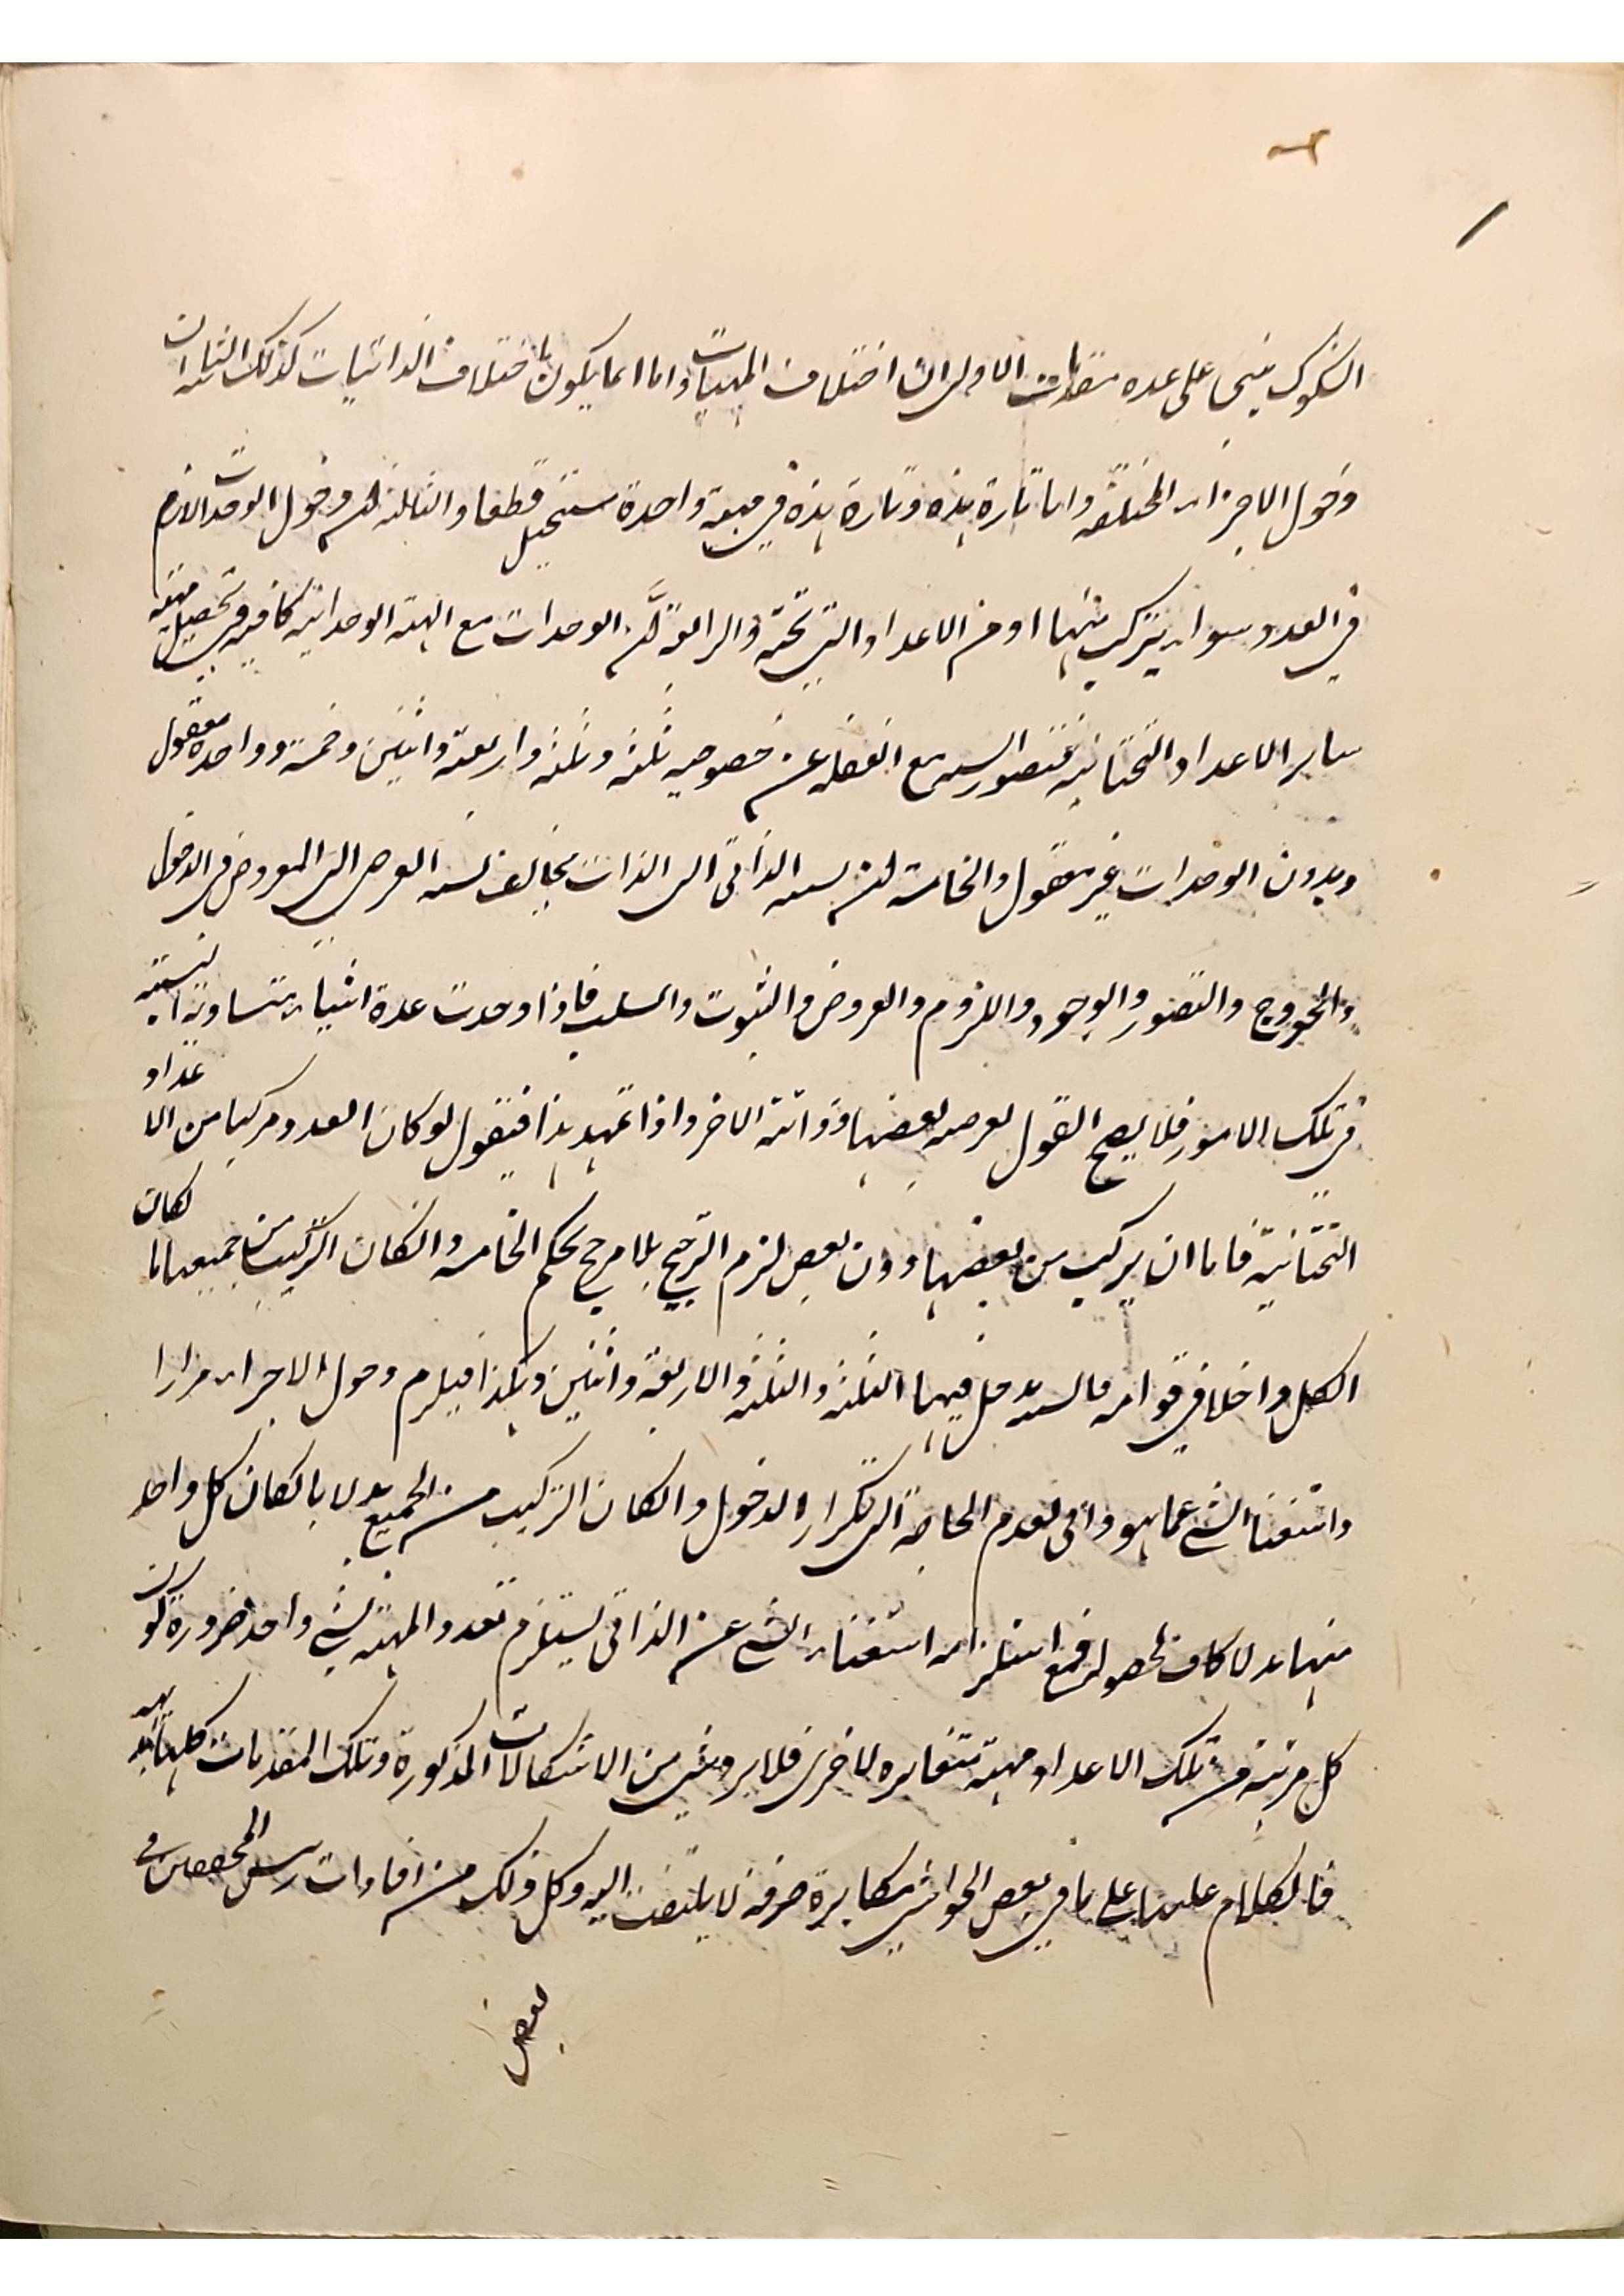 الشكوك يبنى على عدة مقدمات الاولى ان اختلاف المهيات ذاتا انما يكون باختلاف الذاتيات كذلك الثانية ان
دخول الاجزاء المختلفة ذاتا تارة هذه وتارة هذه في مهية واحدة مستحيل قطعا والثالثة ان دخول الوحدات لازم
في العدد سواء يتركب منها او من الاعداد التي تحته والرابعة ان الوحدات مع الهيئة الوحدانية كافية في تحصيل مهية
ساير الاعداد التحتانية فتصور الستة مع الغفلة عن خصوصية ثلثة وثلثة واربعة واثنين وخمسة وواحدة معقول
وبدون الوحدات غير معقول والخامسة ان نسبة الذاتي الى الذات يخالف نسبة العرض الى المعروض في الدخول
والخروج والتصور والوجود واللزوم والعروض والثبوت والسلب فاذا وجدت عدة اشياء متساوية النسبة
في تلك الامور فلا يصح القول بعرضية بعضها وذاتية الاخر واذا تمهد هذا فيقول لو كان العدد مركبا من الاعداد
التحتانية فاما ان يركب من بعضها دون بعض لزم الترجيح بلا مرجح بحكم الخامسة وان كان التركيب من جميعها لكان
الكل داخلا في قوامه فالستة يدخل فيها الثلثة والثلثة والاربعة واثنين وهكذا فيلزم دخول الاجزاء مرارا
واستغناء الشي عما هو ذاتي لعدم الحاجة الى تكرار الدخول وان كان التركيب من الجميع بدلا بان كان كل واحد
منها بدلا كاف لحصوله فمع استلزامه استغناء الشي عن الذاتي يستلزم تعدد المهية لشي واحد ضرورة كون
كل مرتبة من تلك الاعداد مهية متغايره لاخرى فلا يرد شي من الاشكالات المذكورة وتلك المقدمات كلها بديهية
فالكلام عليها على ما في بعض الحواشي مكابرة صرفة لا يلتفت اليه وكل ذلك من افادات المحققين
بعض